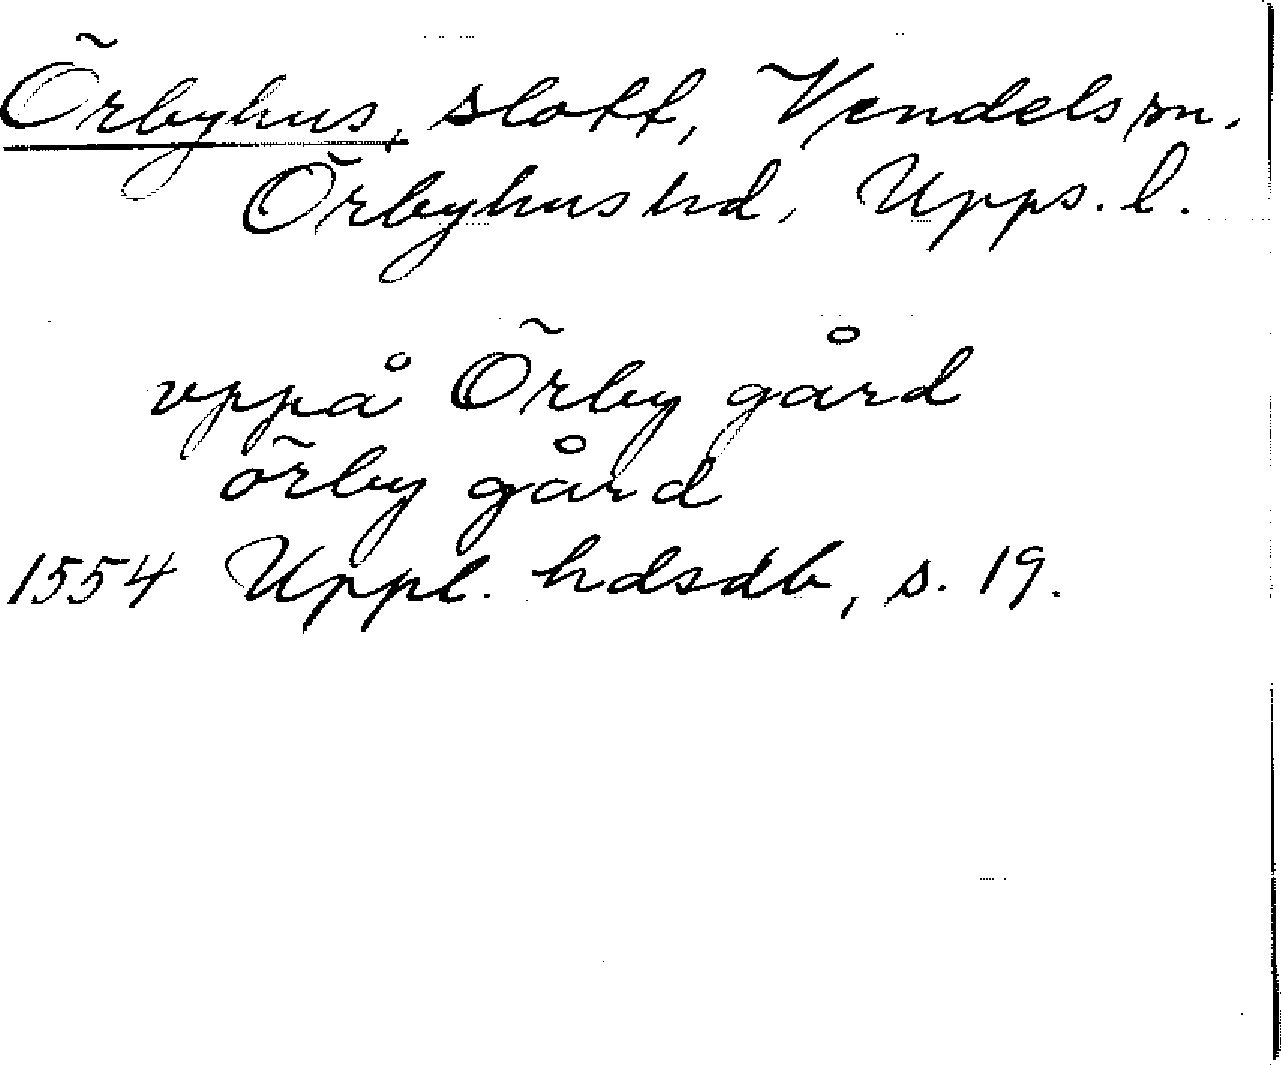 Örbyhus, slott, Vendels sn.
Örbyhus hd, Upps. l.
vppå Örby gård
örby gård
1554 Uppl. hdsdb, s. 19.